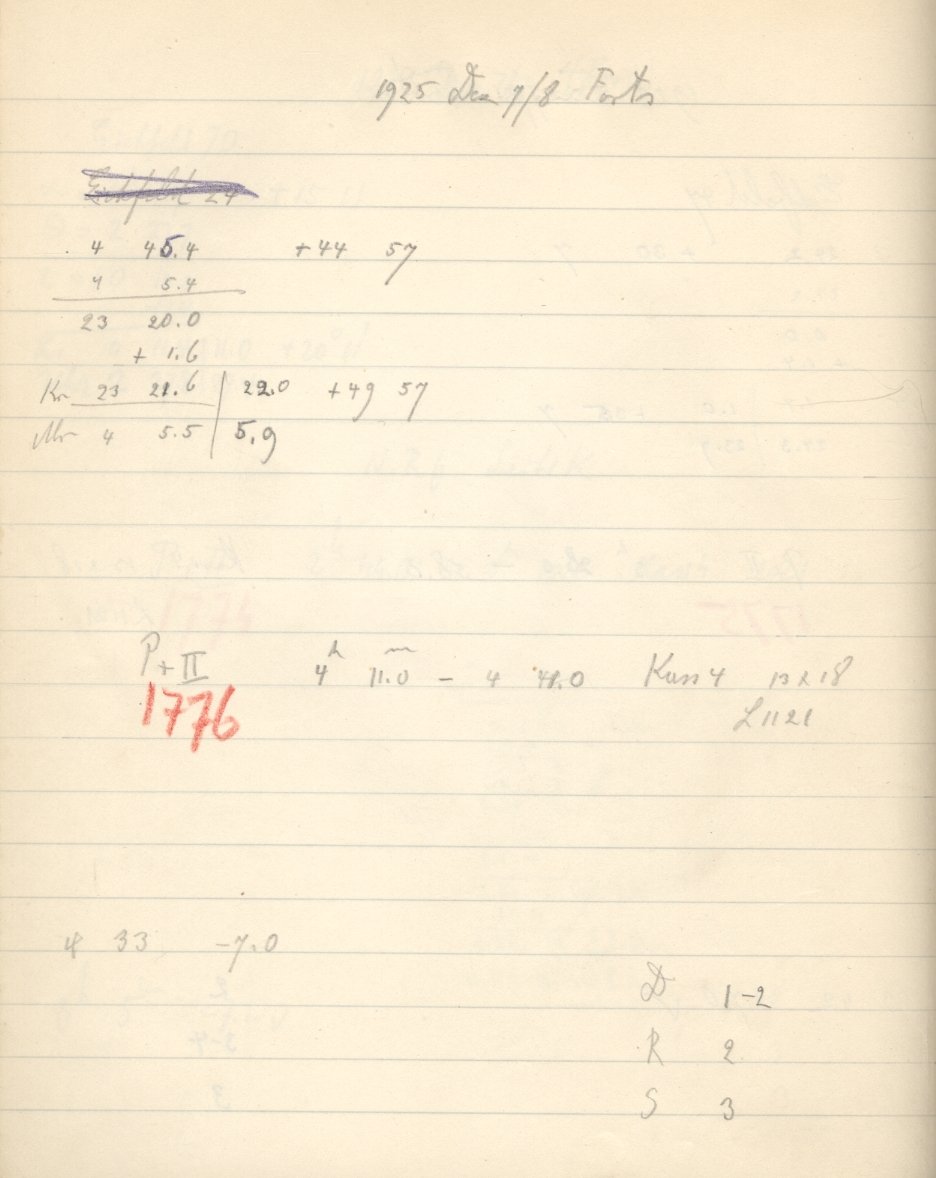 1925 Dez 7/8 Forts
Eichfeld 24
4 45.4 +44 57
4 5.4
23 20.0
+ 1.6
Kr 23 21.6 | 22.0 +49 57
Mr 4 5.5 | 5.9
P + II 4h 11.0m - 4 41.0 Kass 4 13 x 18
1776 L 1121
4 33 -7.0
D 1-2
R 2
S 3